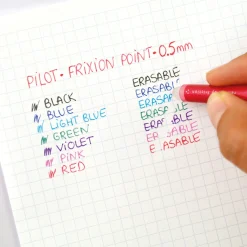 PILOT • FRIXION POINT • 0.5mm
BLACK
BLUE
LIGHT BLUE
GREEN
VIOLET
PINK
RED
ERASABLE
ERASABLE
ERASABLE
ERASABLE
ERASABLE
ERASABLE
ERASABLE